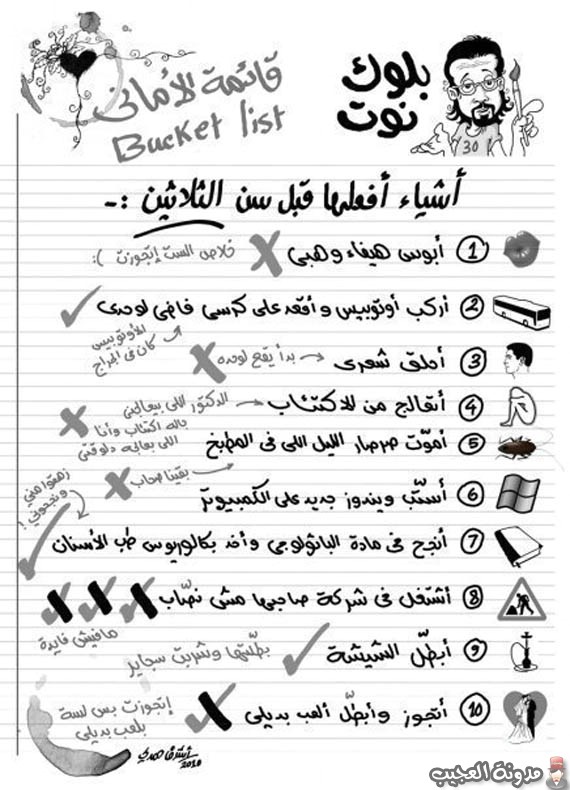 بلوك
نوت
30
قائمة الأماني
Bucket list
أشياء أفعلها قبل سن الثلاثين :-
1 أبوس هيفاء وهبي
خلاص الست إتجوزت :(
2 أركب أوتوبيس وأقعد على كرسي فاضي لوحدي
الأوتوبيس
كان في الجراج
3 أحلق شعري
بدأ يقع لوحده
4 أتعالج من الاكتئاب
الدكتور اللي بيعالجني
جاله اكتئاب وأنا
اللي بعالجه دلوقتي
5 أموّت صرصار الليل اللي في المطبخ
بقينا صحاب
6 أسطّب ويندوز جديد على الكمبيوتر
7 أنجح في مادة الباثولوجي وأخد بكالوريوس طب الأسنان
زهقوا مني
ونجحوني !
8 أشتغل في شركة صاحبها مش نصّاب
مافيش فايدة
9 أبطّل الشيشة
بطّلتها وشربت سجاير
10 أتجوز وأبطّل ألعب بديلي
إتجوزت بس لسة
بلعب بديلي
2010
مدونة العجيب